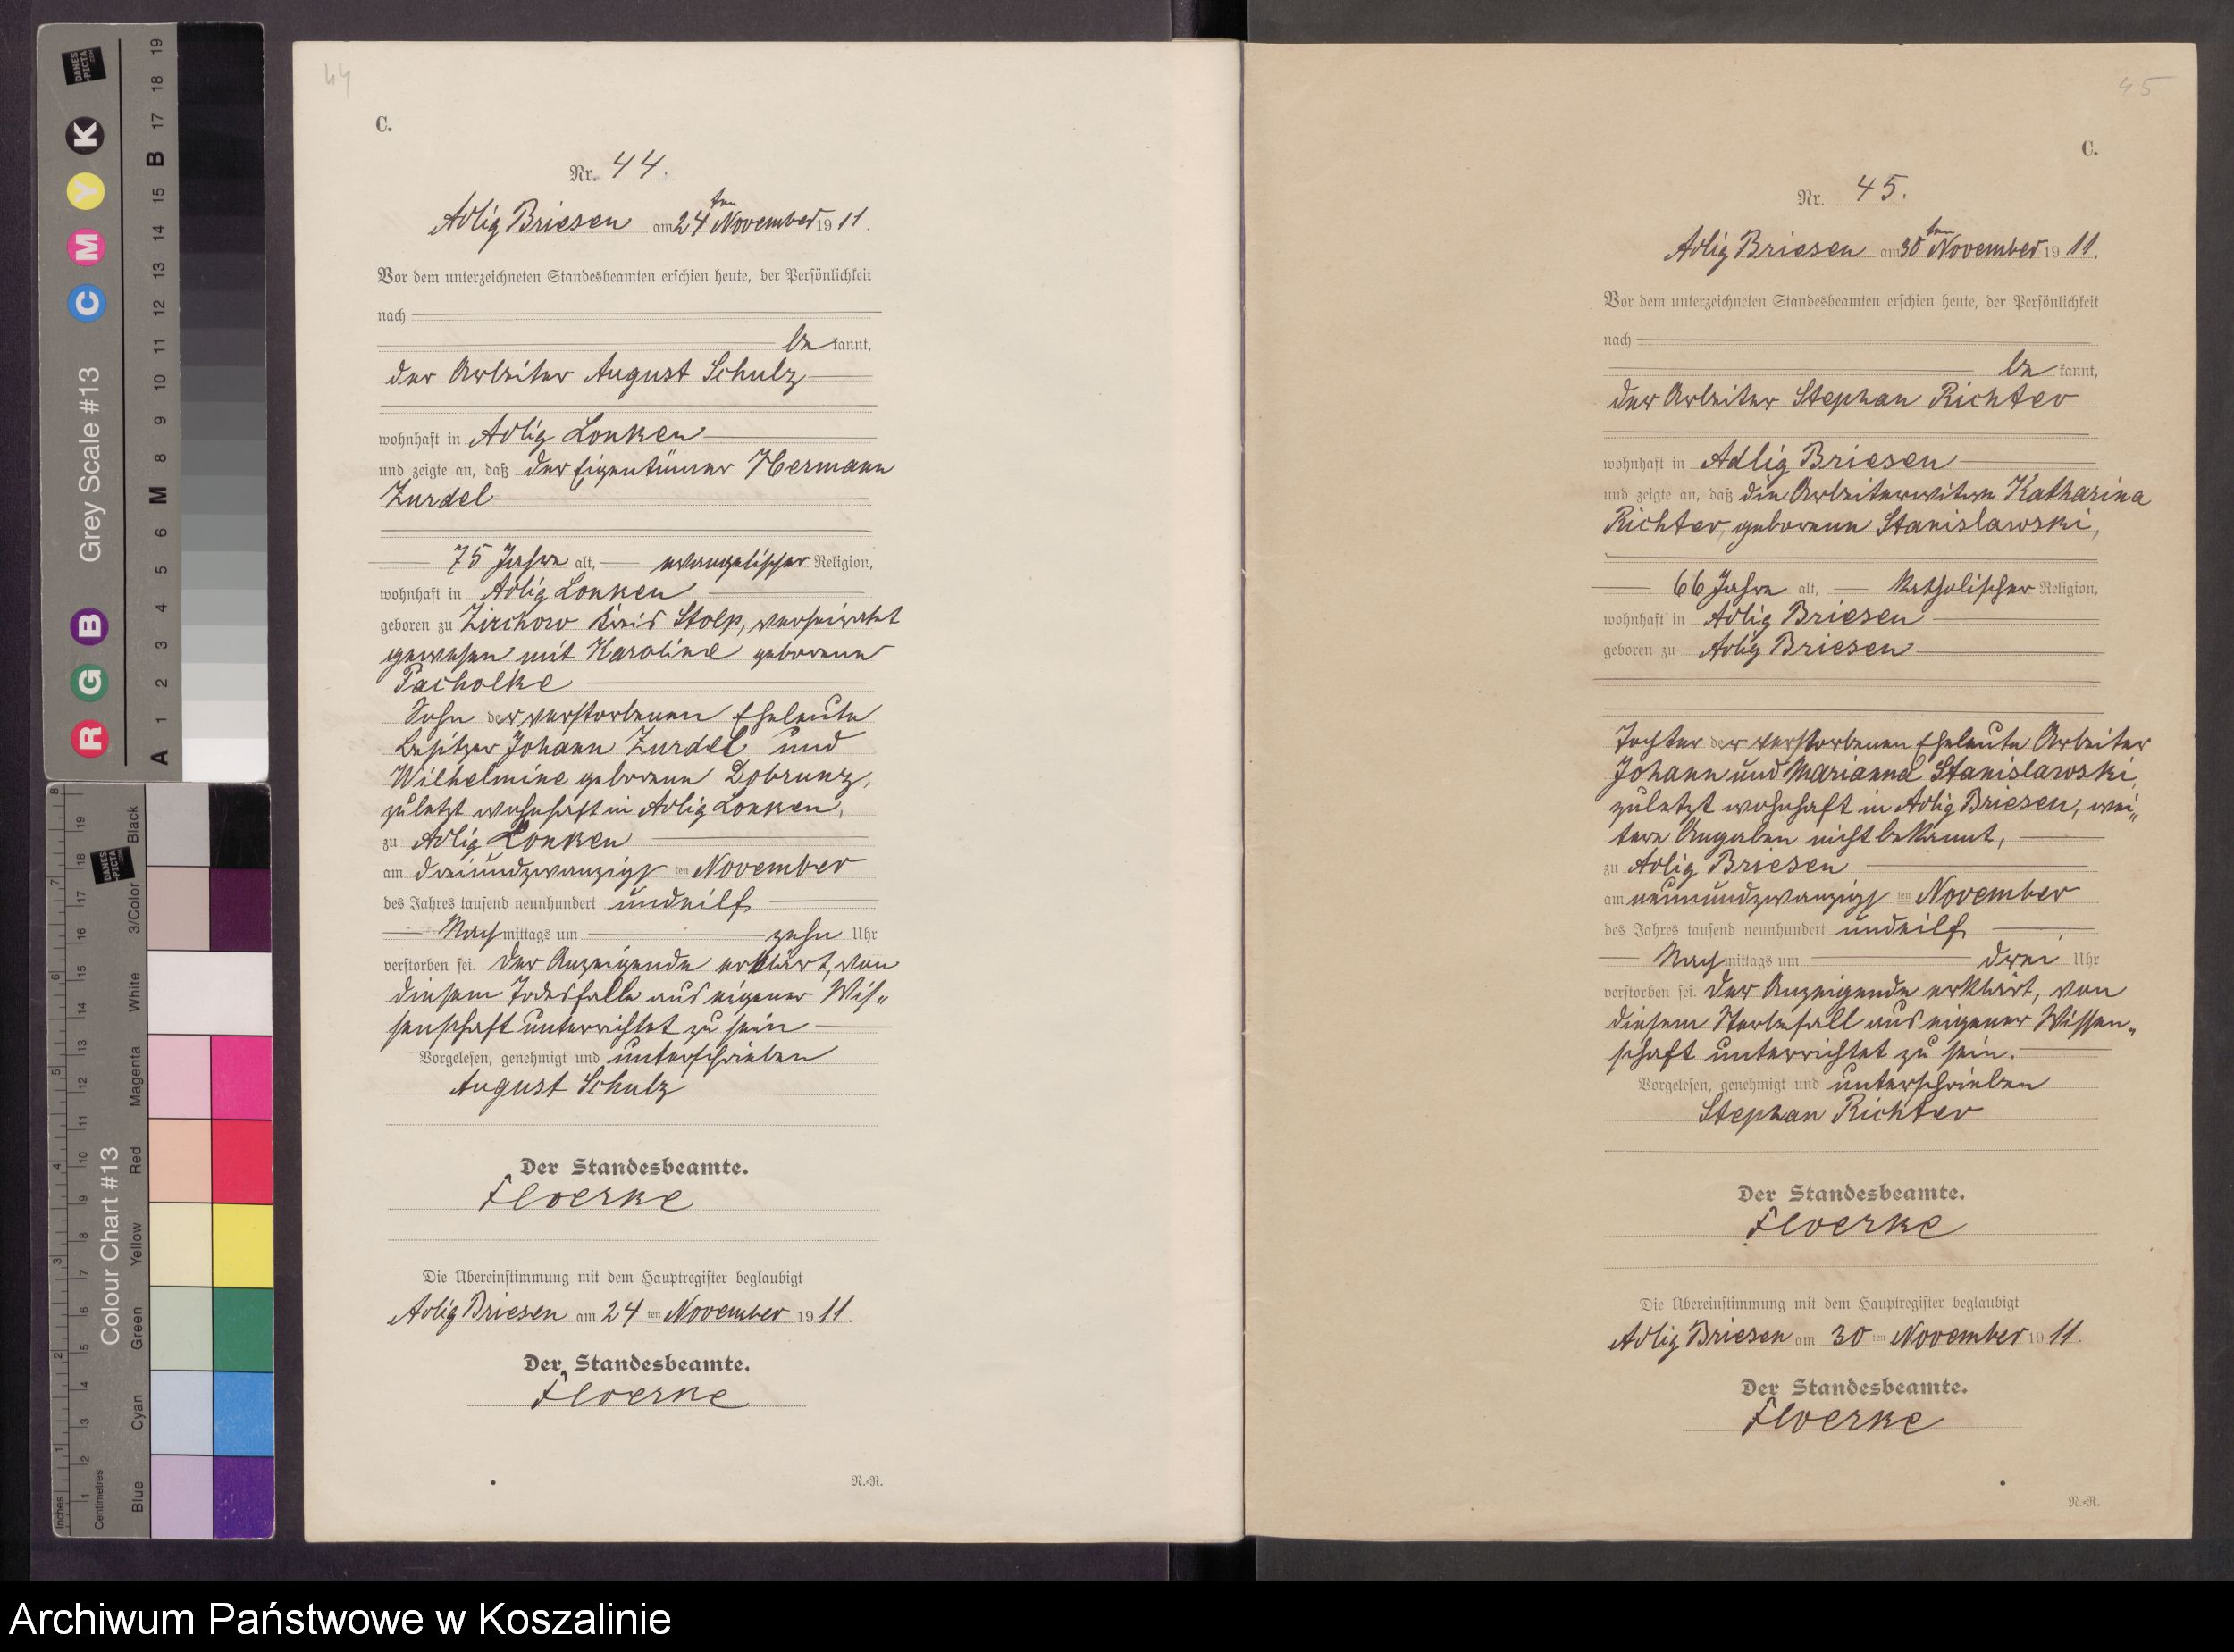 44
C.
Nr. 44.
Adlig Briesen am 24ten November 1911.
Vor dem unterzeichneten Standesbeamten erschien heute, der Persönlichkeit
nach
be kannt,
der Arbeiter August Schulz
wohnhaft in Adlig Lonken
und zeigte an, daß der Eigentümer Hermann
Zurdel
75 Jahre alt, evangelischer Religion,
wohnhaft in Adlig Lonken
geboren zu Zirchow Kreis Stolp, verheiratet
gewesen mit Karoline geborene
Pacholke
Sohn der verstorbenen Eheleute
Besitzer Johann Zurdel und
Wilhelmine geborene Dobrunz,
zuletzt wohnhaft in Adlig Lonken,
zu Adlig Lonken
am dreiundzwanzigsten November
des Jahres tausend neunhundert undeilf
Nachmittags um zehn Uhr
verstorben sei. Der Anzeigende erklärt, von
diesem Todesfalle aus eigener Wis„
senschaft unterrichtet zu sein
Vorgelesen, genehmigt und unterschrieben
August Schulz
Der Standesbeamte.
Floerke
Die Übereinstimmung mit dem Hauptregister beglaubigt
Adlig Briesen am 24ten November 1911.
Der Standesbeamte.
Floerke
R.-R.
45
C.
Nr. 45.
Adlig Briesen am 30ten November 1911.
Vor dem unterzeichneten Standesbeamten erschien heute, der Persönlichkeit
nach
be kannt,
der Arbeiter Stephan Richter
wohnhaft in Adlig Briesen
und zeigte an, daß die Arbeiterwitwe Katharina
Richter, geborene Stanislawski,
66 Jahre alt, katholischer Religion,
wohnhaft in Adlig Briesen
geboren zu Adlig Briesen
Tochter der verstorbenen Eheleute Arbeiter
Johann und Marianna Stanislawski,
zuletzt wohnhaft in Adlig Briesen, wei„
tere Angaben nicht bekannt,
zu Adlig Briesen
am neunundzwanzigsten November
des Jahres tausend neunhundert undeilf
Nachmittags um drei Uhr
verstorben sei. Der Anzeigende erklärt, von
diesem Sterbefall aus eigener Wissen„
schaft unterrichtet zu sein.
Vorgelesen, genehmigt und unterschrieben
Stephan Richter
Der Standesbeamte.
Floerke
Die Übereinstimmung mit dem Hauptregister beglaubigt
Adlig Briesen am 30ten November 1911.
Der Standesbeamte.
Floerke
R.-R.
Grey Scale #13
R G B C M Y K
A 1 2 3 4 5 6 M 8 9 10 11 12 13 14 15 B 17 18 19
DANES PICTA .COM
Colour Chart #13
Blue Cyan Green Yellow Red Magenta White 3/Color Black
Inches 1 2 3 4 5 6 7 8
Centimetres 1 2 3 4 5 6 7 8 9 10 11 12 13 14 15 16 17 18 19
DANES PICTA .COM
Archiwum Państwowe w Koszalinie